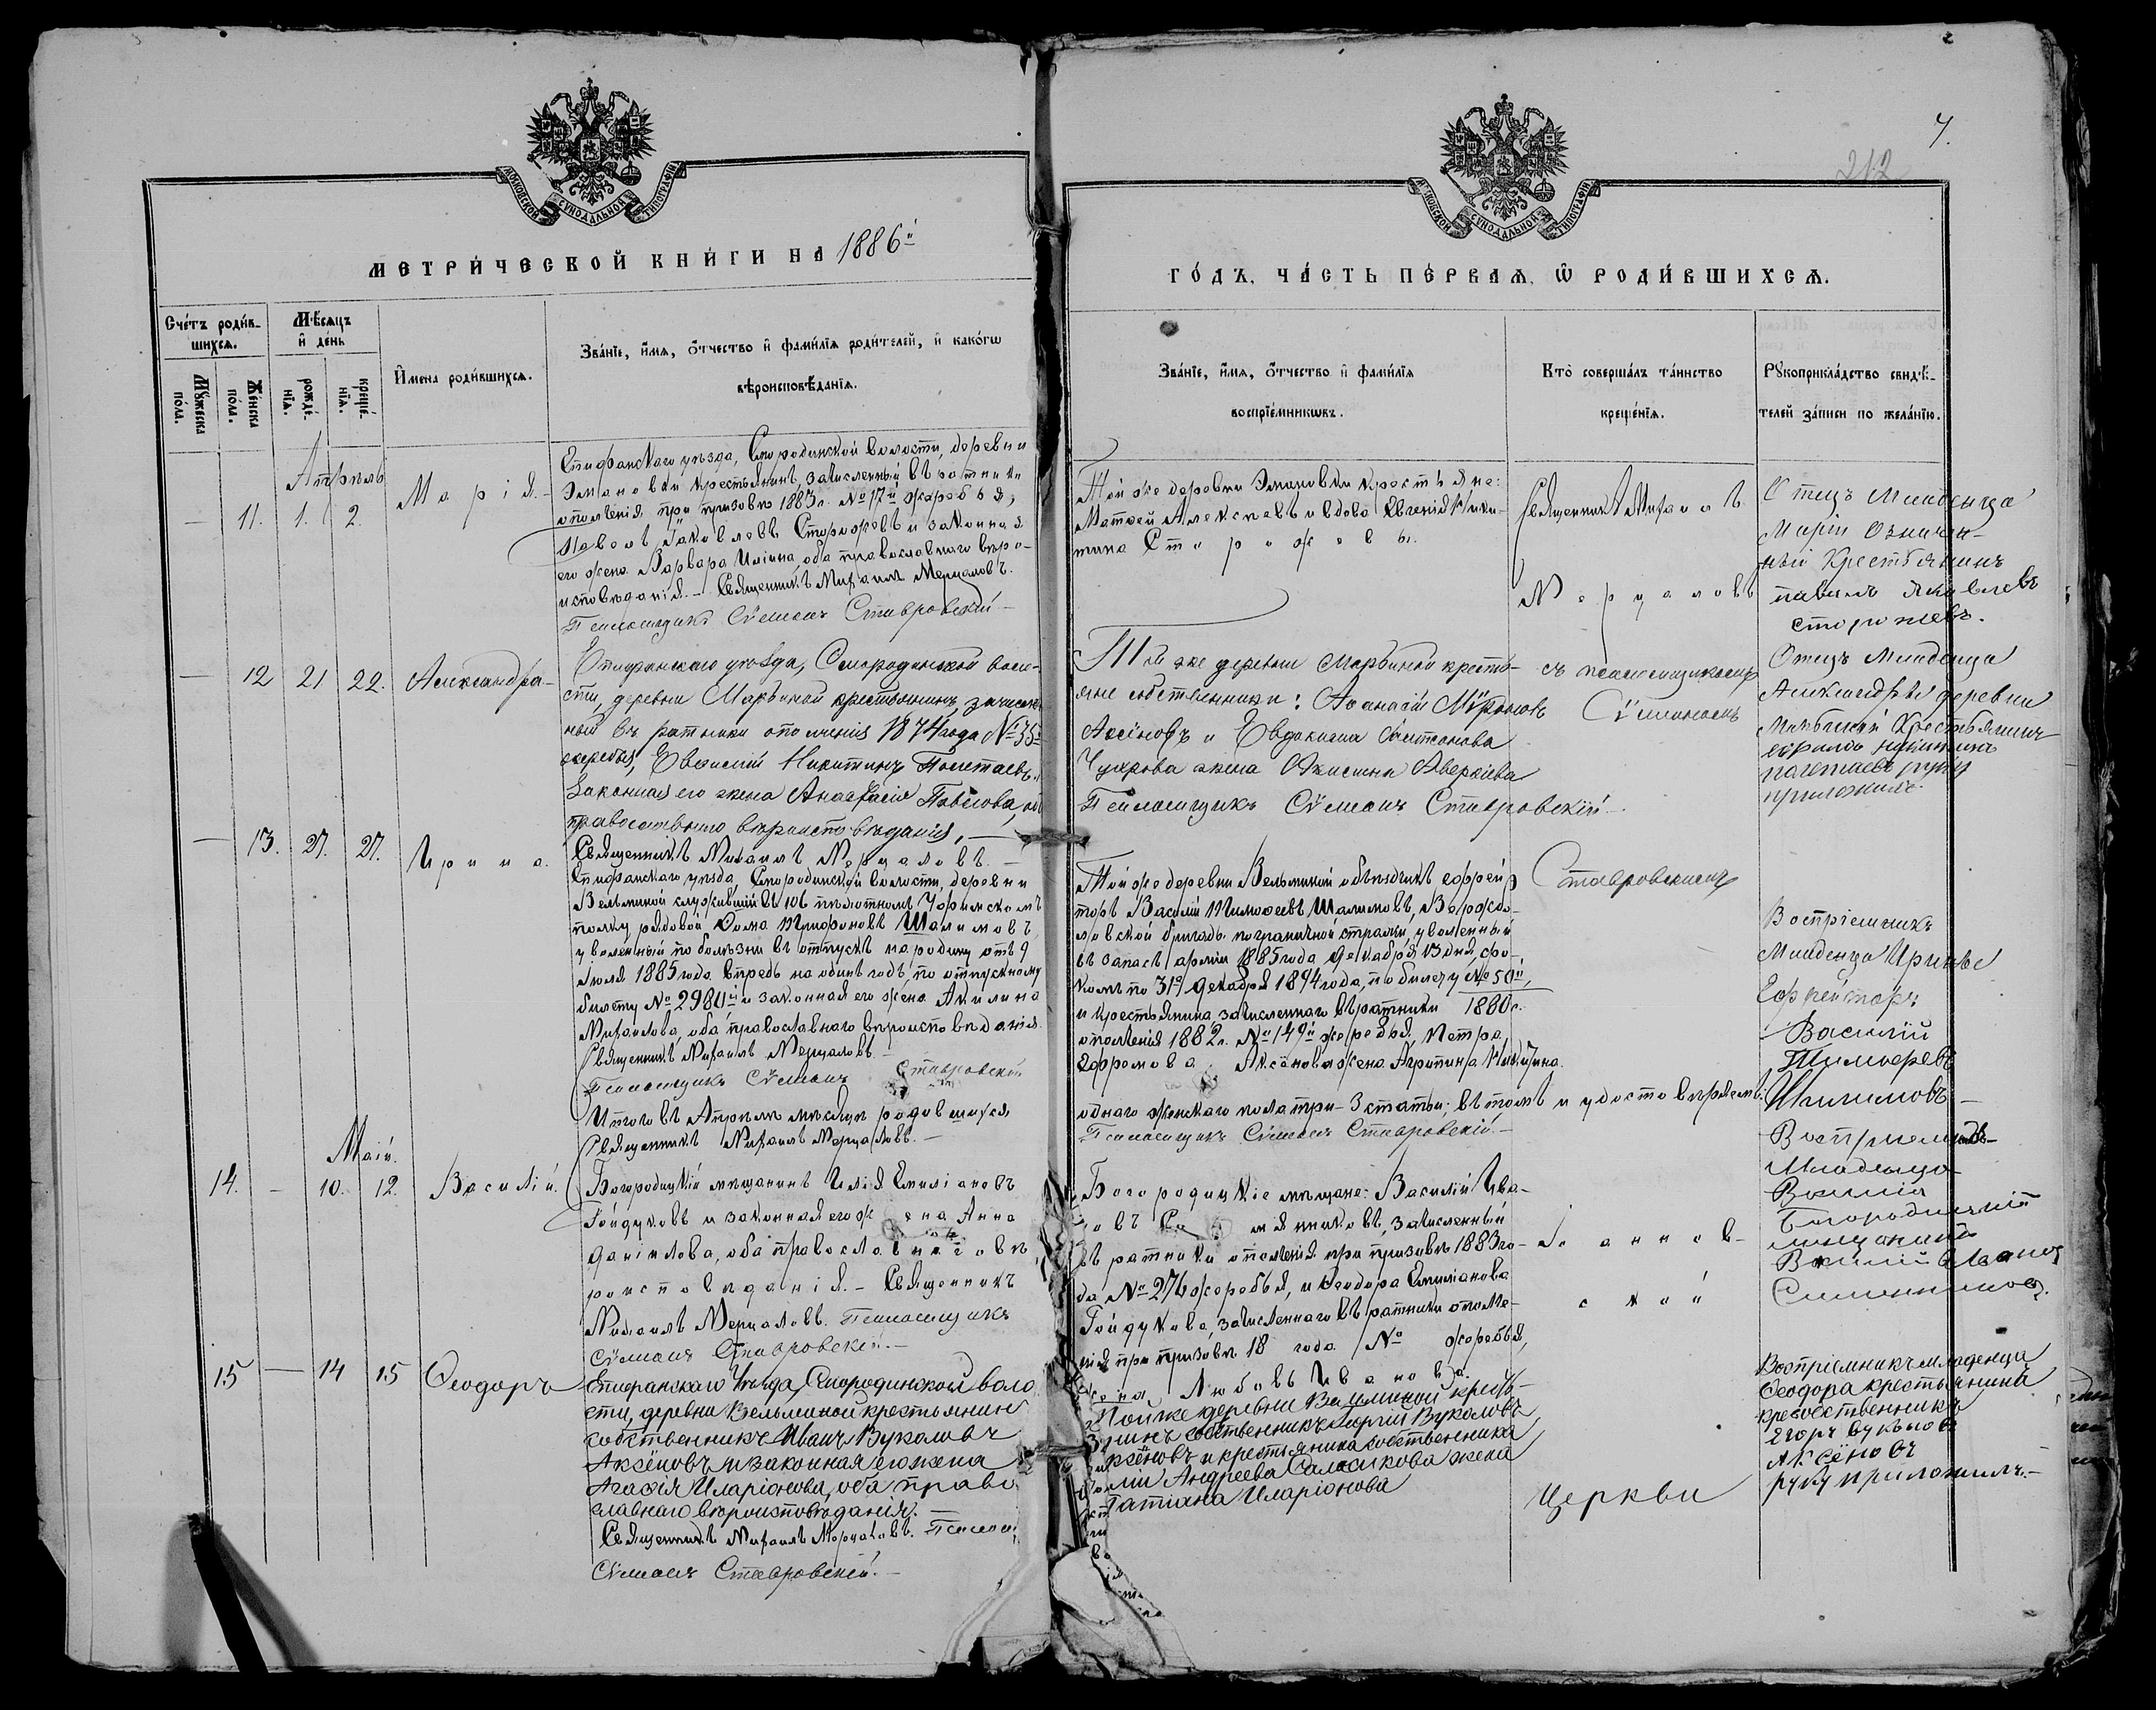 7.
212
МОСКОВСКОЙ СУНОДАЛЬНОЙ ТИПОГРАФІИ
МОСКОВСКОЙ СУНОДАЛЬНОЙ ТИПОГРАФІИ
МЕТРИ́ЧЕСКОЙ КНИ́ГИ НА 1886й
ГО́ДЪ, ЧА́СТЬ ПЕ́РВАѦ, Ѡ РОДИ́ВШИХСѦ.
Сче́тъ роди́в-
шихсѧ.
Мꙋ́жеска
по́ла.
Же́нска
по́ла.
Мѣ́сяцъ
и҆ де́нь
рожде́-
нїѧ.
креще́-
нїѧ.
И҆мена роди́вшихсѧ.
Зва́нїе, и҆́мѧ, ѻ҆́тчество и҆ фами́лїѧ роди́телей, и҆ како́гѡ
вѣроисповѣ́данїѧ.
Зва́нїе, и҆́мѧ, ѻ҆́тчество и҆ фами́лїѧ
воспрїе́мникѡвъ.
Кто̀ соверша́лъ та́инство
креще́нїѧ.
Рꙋкоприкла́дство свидѣ́-
телей за́писи по жела́нїю.
Апрѣль
— 11. 1. 2.
Марія.-
Епифанскаго уѣзда, Смородинской волости, деревни
крестьянинъ, зачисленный въ ратники
ополченія при призовѣ 1883 г. № 17й жеребья,
Павелъ Яковлевъ Сторожевъ и законная
его жена Варвара Иліина, оба православнаго вѣро-
исповѣданія.- Священникъ Михаилъ Мерцаловъ.
Псаломщикъ Сѵмеонъ Ставровскій-
Той же деревни крестьяне:
Матѳей Алексѣевъ и вдова Евгенія Ники-
тина Сторожевы.
Священникъ Михаилъ
Мерцаловъ
Отецъ Младенца
Маріи Означен-
ный Крестьянинъ
павелъ Яковлевъ
сторожевъ.
— 12 21 22.
Александра-
Епифанскаго уѣзда, Смородинской воло-
сти, деревни Марьиной крестьянинъ, зачислен-
ный въ ратники ополченія 1874 года № 35й
жеребья, Никитинъ Полетаевъ,
законная его жена Анастасія Павлова, оба
православнаго вѣроисповѣданія, —
Священникъ Михаилъ Мерцаловъ.-
Той же деревни Марьиной крестья-
яне собственники: Аѳанасій Мѵроновъ
Аксёновъ и Евдокима Антонова
Чухрова жена Аверкіева
Псаломщикъ Сѵмеонъ Ставровскій-
съ псаломщикомъ
Сѵмеономъ
Ставровскимъ
Отецъ Младенца
Александры деревни
Марьиной Крестьянинъ
никитинъ
полетаевъ руку
приложилъ.
— 13. 27. 27.
Ирина.
Епифанскаго уѣзда, Смородинской волости, деревни
Вельминой служившій въ 106 пѣхотномъ Уфимскомъ
полку рядовой Ѳома Трифоновъ Шалимовъ,
уволенный по болѣзни въ отпускъ на родину отъ 9
Іюля 1885 года впредь на одинъ годъ, по отпускному
билету № 2980й и законная его жена Акилина
Михаилова, оба православнаго вѣроисповѣданія
Священникъ Михаилъ Мерцаловъ.-
Псаломщикъ Сѵмеонъ Ставровскій
Той же деревни Вельминой объѣздчикъ ефрей-
торъ Василій Тимоѳеевъ Шалимовъ,
бригады пограничной стражи, уволенный
въ запасъ арміи 1885 года Декабря 13 дня, сро-
комъ по 31е Декабря 1894 года, по билету № 50й,
и крестьянина, зачисленнаго въ ратники 1880 г.
ополченія 1882 г. № 149й жеребья, Петра
Ефремова Аксёнова жена Агрипина Никитина.
Воспріемникъ
Младенца Ирины
Ефрейторъ
Василій
Тимоѳеевъ
Шалимовъ —
Итого въ Апрѣлѣ мѣсяцѣ родившихся
одного женскаго пола три- 3 статьи; въ томъ и удостовѣряемъ.
Священникъ Михаилъ Мерцаловъ.-
Псаломщикъ Сѵмеонъ Ставровскій.-
Май.
14. — 10. 12.
Василій.
Богородицкій мѣщанинъ Илія Емиліановъ
Гойдуковъ и законная его жена Анна
Даніилова, оба православнаго вѣ-
роисповѣданія.- Священникъ
Михаилъ Мерцаловъ. Псаломщикъ
Сѵмеонъ Ставровскій.-
Богородицкіе мѣщане: Василій Ива-
новъ зачисленный
въ ратники ополченія при призовѣ 1883 го-
да № 276 жеребья, и Ѳеодора Емиліанова
Гойдукова, зачисленнаго въ ратники ополче-
нія при призовѣ 18 года № жеребья,
жена Любовь Иванова.
Іоаннов-
ской
Воспріемникъ
Младенца
Василія
Богородицкій
мещанинъ
Василій Иванов
15 — 14 15
Ѳеодоръ
Епифанскаго Уѣзда, Смородинской воло
сти, деревни Вельминой крестьянинъ
собственникъ Иванъ Вуколовъ
Аксёновъ и законная его жена
Агаѳія Иларіонова, оба право
славнаго вѣроисповѣданія.-
Священникъ Михаилъ Мерцаловъ.
Сѵмеонъ Ставровскій.-
Той же деревни Вельминой кресть-
янинъ собственникъ Георгій Вуколовъ
Аксёновъ и крестьянина собственника
Андреева Саласикова жена
Татіана Иларіонова
Церкви
Воспріемникъ младенца
Ѳеодора крестьянина
егоръ вуколовъ
Аксёновъ
руку приложилъ.-